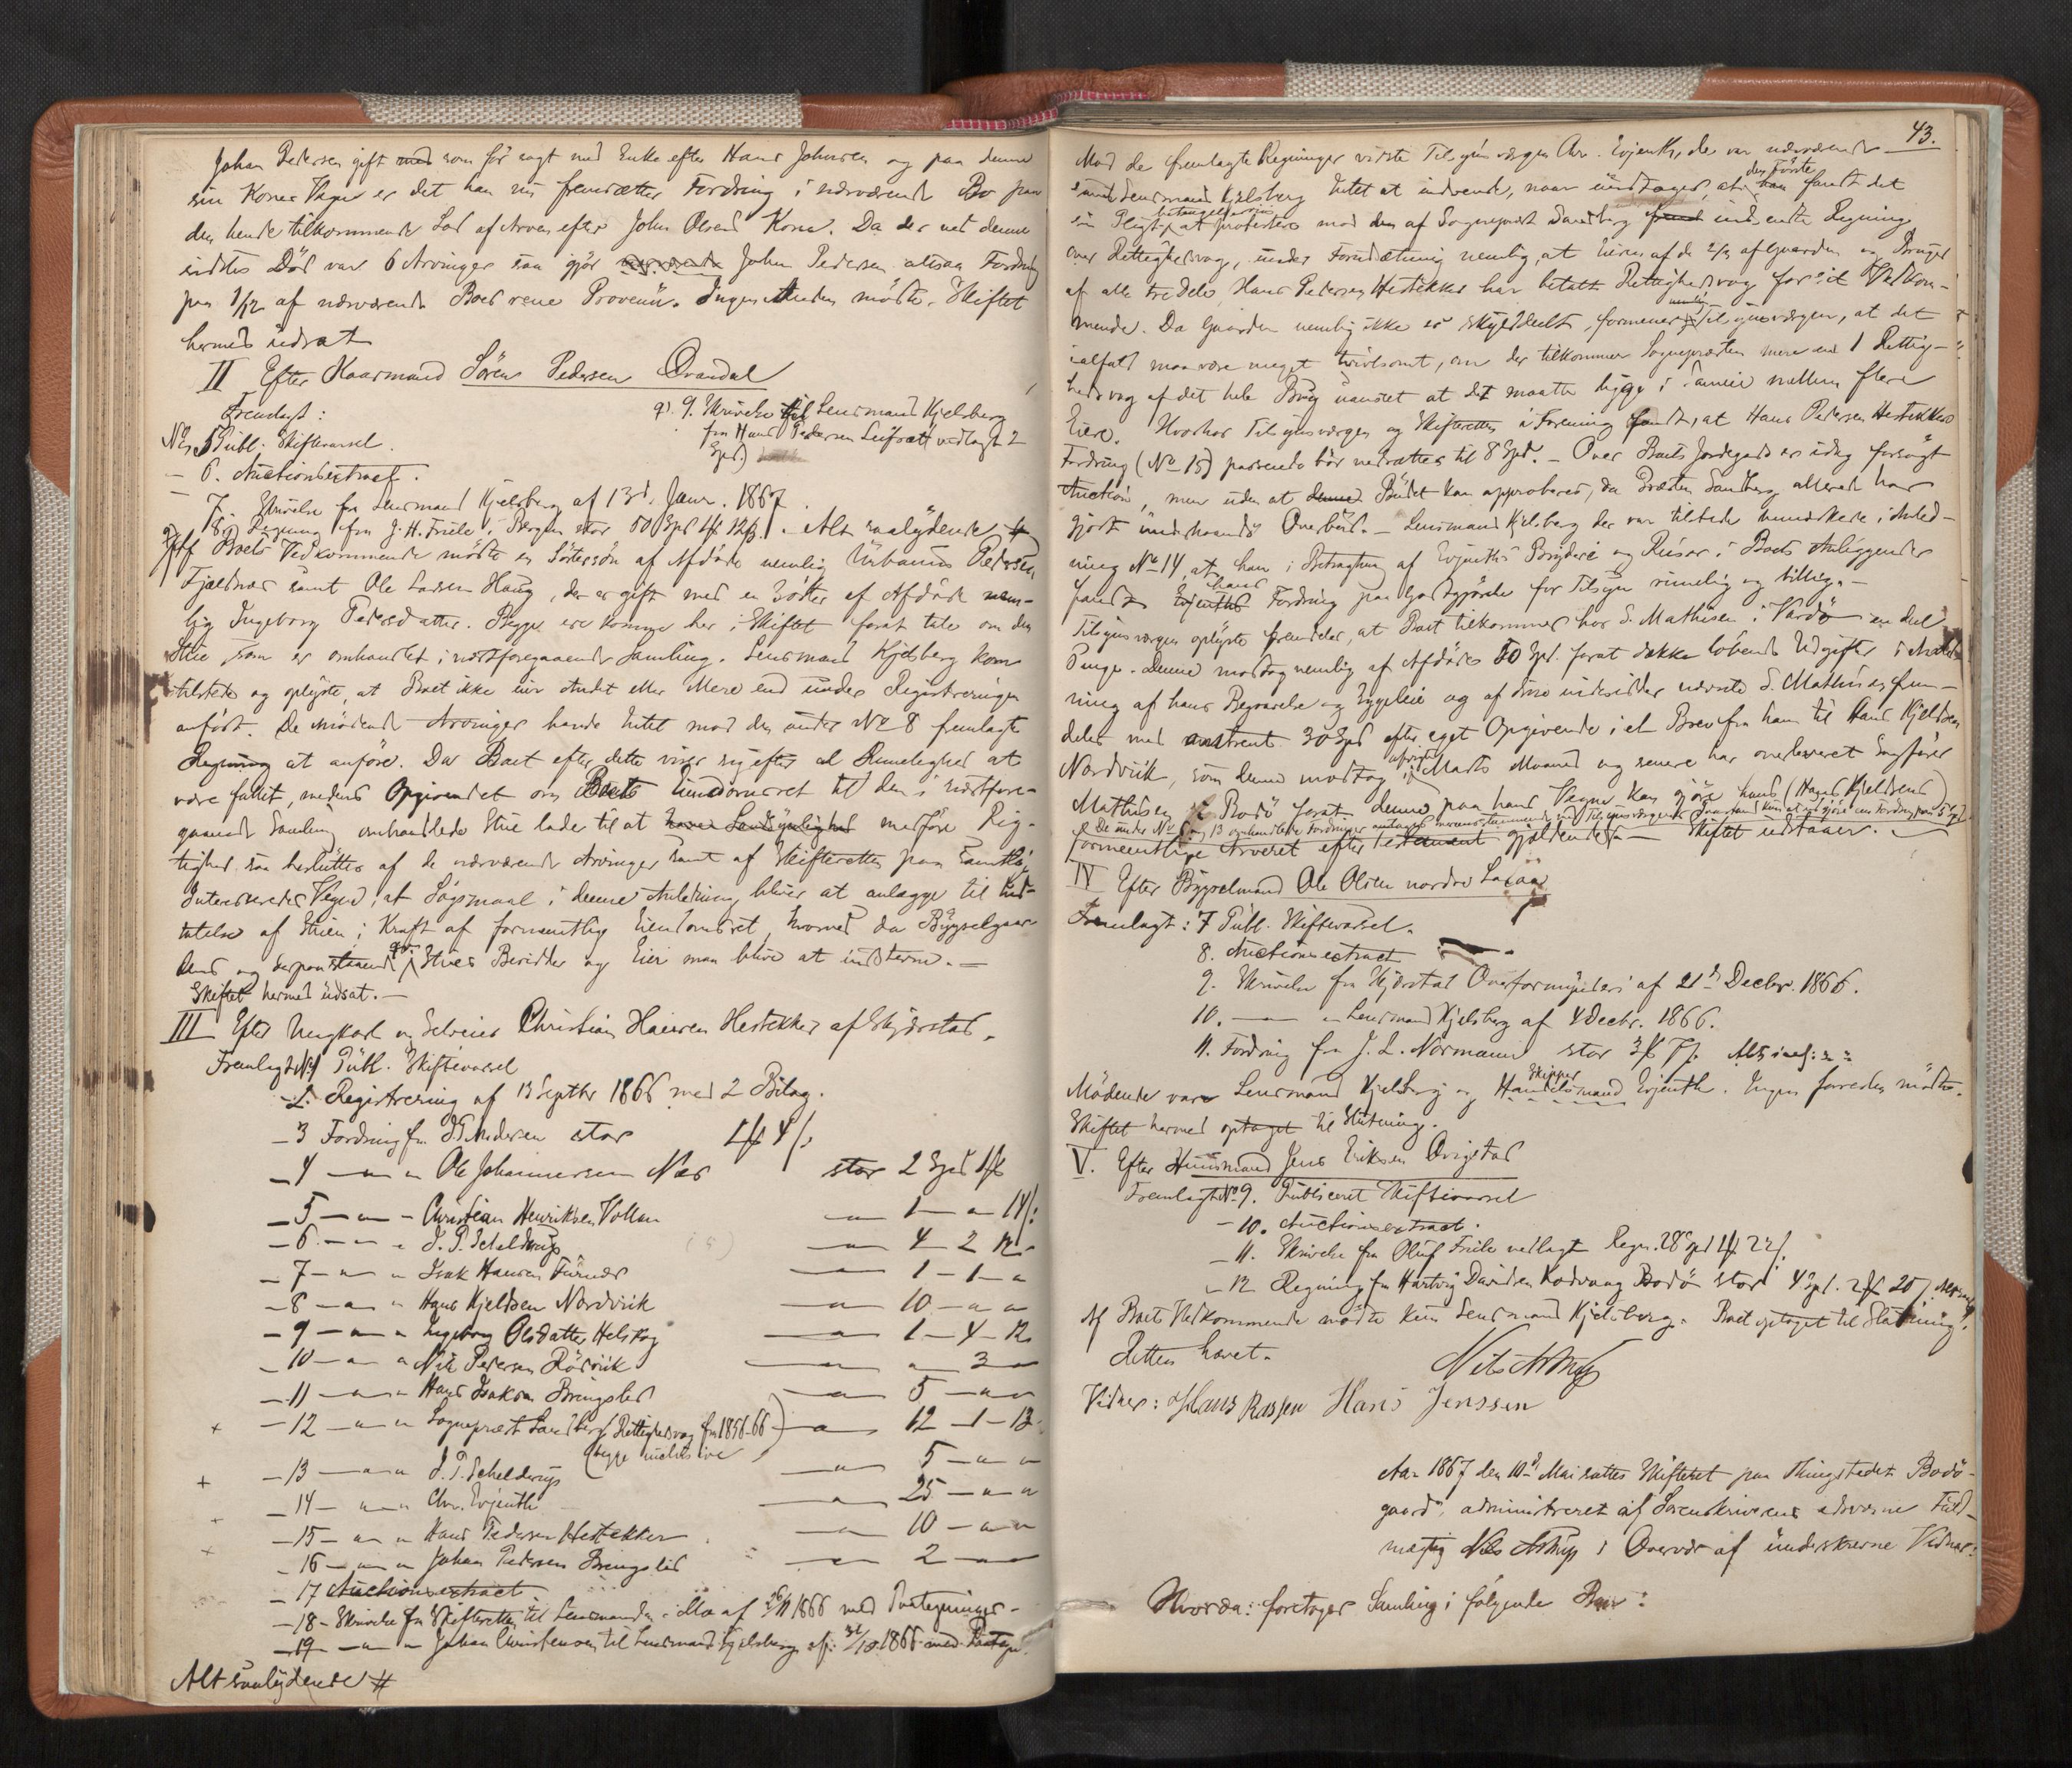 Johan Pedersen gift med som før sagt med Enke efter Hans Johnsen og paa denne
sin Kones Vegne er det han nu fremsætter Fordring i nærværende Bo paa
den hende tilkommende Lod af Arven efter John Olsens Kone. Da der ved denne
sidstes Død var 6 Arvinger saa gjør Johan Pedersen altsaa Fordring
paa 1/12 af nærværende Boes rene Provenu. Ingen Anden mødte. Skiftet
hermed udsat
II Efter Kaarmand Sören Pedersen Övandal
Fremlagt:
No 5 Publ. Skiftevarsel.
— 6. Auctionsextract.
— 7. Skrivelse fra Lensmand Kjelsberg af 13d. Janr. 1867.
8. Regning fra J. H. Friele i Bergen stor 50 Spd 4 12 . Alt saalydende #
9. Skrivelse til Lensmand Kjelsberg
fra Hans Pedersen vedlagt 2
Spd)
Af Boets Vedkommende mødte en Søstersøn af Afdøde nemlig Urbanus Pedersen
Fjældnæs samt Ole Larsen Haug, der er gift med en Søster af Afdøde nem-
lig Ingeborg Pedersdatter. Begge ere komne her i Skiftet forat tale om den
Stue som er omhandlet i næstforegaaende Samling. Lensmand Kjelsberg kom
tilstede og oplyste, at Boet ikke eier Andet eller Mere end under Registreringen
anført. De mødende Arvinger havde Intet mod den under No 8 fremlagte
Regning at anføre. Da Boet efter dette viser sig efter al Rimelighed at
være fallit, medens Opgivendet om Boets Eiendomsret til den i næstfore-
gaaende Samling omhandlede Stue lader til at have Sandsynlighed medføre Rig-
tighed saa besluttes af de nærværende Arvinger samt af Skifteretten paa samtlige
Interesseredes Vegne, at Søgsmaal i denne Anledning bliver at anlægge til
af Stuen i Kraft af formentlig Eiendomsret, hvorved da Bygselgaar-
dens og derpaa staaende Stues Besidder og Eier maa blive at indstevne. —
Skiftet hermed udsat. —
III Efter Ungkarl og Selveier Christian Hansen Hestekker af Skjerstad.
Fremlagt No 1 Publ. Skiftevarsel
— 2. Registrering af 13 Septbr 1866 med 2 Bilag.
— 3 Fordring fra Andersen stor 1 4
— 4 — " — " Ole Johannessen Næs stor 2 Spd 1
— 5 — " — Christian Henriksen Vollan — " — 1 — " 14
— 6 — " — " J. P. Schelderup — " — 4 — 2 12
— 7 — " — " Isak Hansen Furnæs — " — 1 — 1 — "
— 8 — " — " Hans Kjeldsen Nordvik — " — 10 — " "
— 9 — " — " Ingeborg Olsdatter — " — 1 — 4 — 12
— 10 — " — " Nils Pedersen Rörvik — " — " — 3 — "
— 11 — " — " Hans Isaksen Bringsled — " — 5 — " "
+ — 12 — " — " Sognepræst Sandberg (Rettighedsvog fra 1858-66) — " — 12 — 1 — 12
+ — 13 — " — " J. P. Schelderup — " — 5 — " "
+ — 14 — " — " Chr. Evjenth — " — 25 — " "
× — 15 — " — " Hans Pedersen Hestekker — " — 10 — " "
— 16 — " — " Johan Pedersen Bringsled — " — 2 — "
— 17 Auctionsextract
— 18 — Skrivelse fra Skifteretten til Lensmanden af 26/11 1866 med Paategninger —
— 19 — " — " Johan Christensen til Lensmand Kjelsberg af 1866 med
Alt saalydende #
43.
Mod de fremlagte Regninger vidste Tilsynsværgen Chr. Evjenth, der var nærværende
samt Lensmand Kjelsberg Intet at indvende, naar undtages, at den Første han fandt det
sin Pligt at protestere mod den af Sognepræst Sandberg indsendte Regning
over Rettighedsvog, under Forudsætning nemlig, at Eieren af de 2/3 af Gaarden og Bruger
af alle tre Dele Hans Pedersen Hestekker har betalt Rettighedsvog for sit Vedkom-
mende. Da Gaarden nemlig ikke er skylddeelt, formener Tilsynsværgen, at det
ialfald maa være meget tvivlsomt, om der tilkommer Sognepræsten mere end 1 Rettig-
hedsvog af det hele Brug uanset at det maatte ligge i Sameie mellem flere
Eiere. Hvorhos Tilsynsværgen og Skifteretten i Forening fandt, at Hans Pedersen Hestekkers
Fordring (No 15) passende bør nedsættes til 8 Spd. — Over Boets Jordegods er idag forsøgt
Auction, men uden at Budet kan approberes, da Præsten Sandberg allerede har
gjort underhaands Overbud. — Lensmand Kjelsberg der var tilstede bemærkede i Anled-
ning No 14, at han i Betragtning af Evjenths Bryderi og Reiser i Boets Anliggender
fandt Evjenths hans Fordring paa Godtgjørelse for Tilsyn rimelig og billig. —
Tilsynsværgen oplyste fremdeles, at Boet tilkommer hos S. Mathisen i Vardö en del
Penge. Denne modtog nemlig af Afdøde 50 Spd. forat dække løbende Udgifter i Anled-
ning af hans Begravelse og Sygeleie og af disse indesidder nævnte S. Mathisen frem-
deles med omtrent 30 Spd efter eget Opgivende i et Brev fra ham til Hans Kjeldsen
Nordvik, som denne modtog i Marts Maaned og senere har overleveret Sagfører
Mathisen i Bodö forat denne paa hans Vegne kan gjøre hans (Hans Kjeldsens)
De under No og 13 omhandlede Fordringer
formeentlige Arveret efter Testament gjældende — Skiftet udstaaer.
IV Efter Bygselmand Ole Olsen nordre
Fremlagt: 7 Publ. Skiftevarsel.
8. Auctionsextract
9. Skrivelse fra Skjerstad Overformynderi af 21d Decbr. 1866.
10. — " Lensmand Kjelsberg af 4 Decbr. 1866.
11. Fordring fra J. L. Normann stor 3
Mødende vare Lensmand Kjelsberg og Skipper Handelsmand Evjenth. Ingen forresten mødte.
Skiftet hermed optaget til Slutning.
V. Efter Huusmand Jens Eriksen
Fremlagt No 9. Publiceret Skiftevarsel
— 10. Auctionsextract.
— 11. Skrivelse fra Oluf Friele vedlagt Regn. 28 Spd 1 22
— 12 Regning fra Hartvig Davidsen Bodö stor 4 Spd. 2 20
Af Boets Vedkommende mødte kun Lensmand Kjelsberg. Boet optaget til Slutning.
Retten hævet.
Nils Astrup
Vidner: Hans Hans Jenssen
Aar 1867 den 10d Mai sattes Skifteret paa Thingstedet Bodö-
gaard, administreret af Sorenskriverens edsvorne Fuld-
mægtig Nils Astrup i Overvær af underskrevne Vidner:
Hvorda: foretoges Samling i følgende Boer: